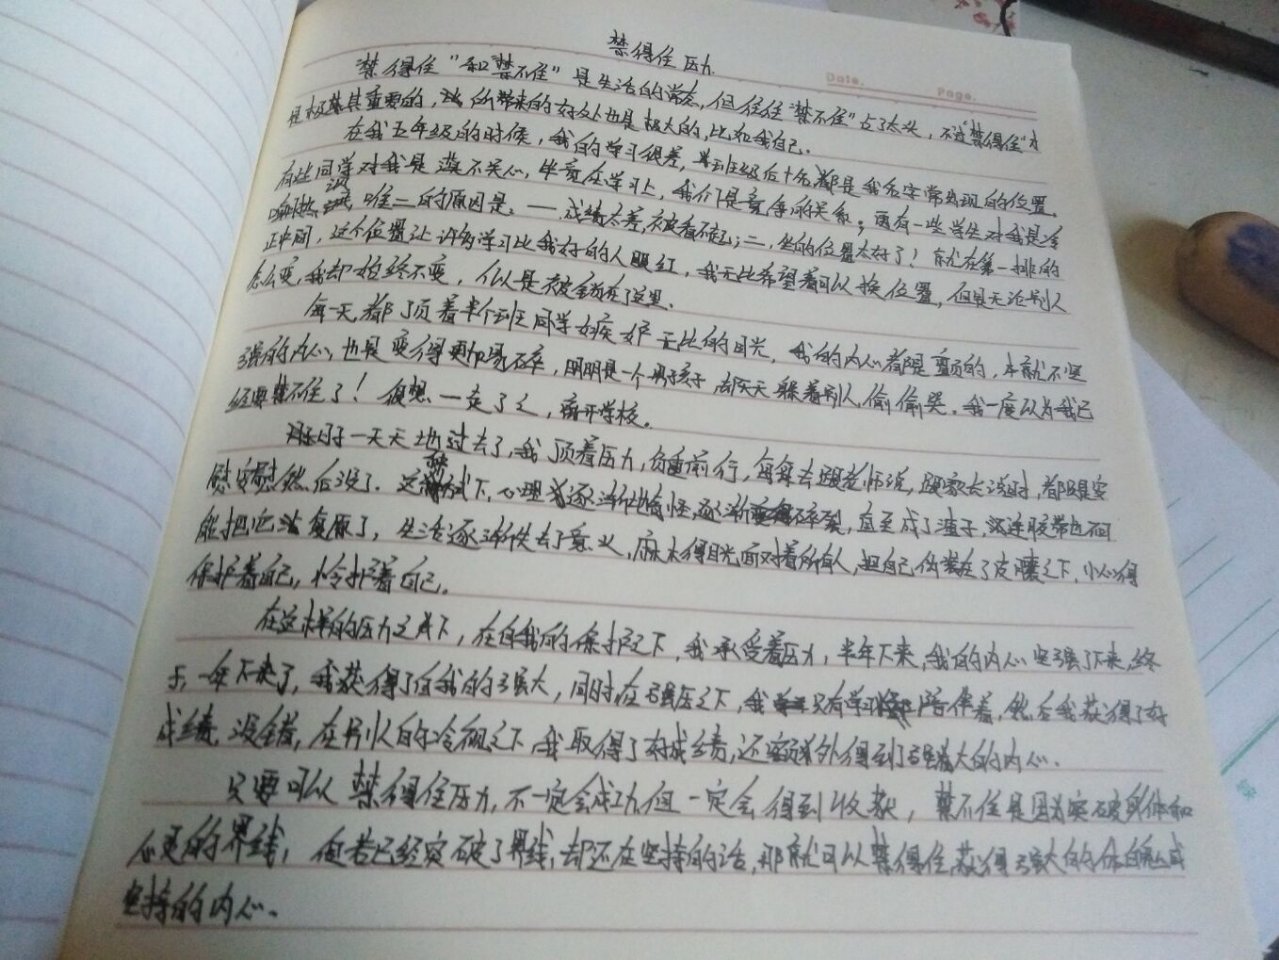 禁得住压力
Date.
Page.
"禁得住"和"禁不住"是生活的常态,但往往"禁不住"占了太头,不过"禁得住"才
是极其重要的,所带来的好处也是极大的,比如我自己。
在我五年级的时候,我的学习很差,班级后十名都是我名字常出现的位置。
有些同学对我是漠不关心,毕竟在学习上,我们是竞争的关系;更有一些学生对我是
唯二的原因是:一,成绩太差,被看不起;二,坐的位置太好了!就在第一排的
正中间,这个位置让许多学习比我好的人眼红,我无比希望着可以换位置,但是无论别人
怎么变,我却始终不变,似是被锁在了这里。
每一天,都顶着半个班同学嫉妒无比的目光,我的内心都是重负的,本就不坚
强的内心,也是变得更加易碎,明明是一个男孩子,却天天躲着别人偷偷哭。我一度以为我已
经要禁不住了!很想一走了之,离开学校。
日子一天天地过去了,我顶着压力,负重前行,每每去跟老师说,跟家长谈时,都只是安
慰安慰,然后没了。这禁下,心理逐渐怪,逐渐碎裂,直至成了渣子,这连胶带也不
能把它复原了,生活逐渐失去了意义,麻木得目光面对着所有人,把自己伪装在了皮囊之下,小心得
保护着自己,怜护着自己。
在这样的压力之下,在自我的保护之下,我承受着压力,半年下来,我的内心坚强了下来,终
于,一年下来了,我获得了自我的强大,同时在强压之下,我只有学习陪伴着,然后我获得了好
成绩,没错,在别人的冷视之下,我取得了好成绩,还额外得到了强大的内心。
只要可以禁得住压力,不一定会成功,但一定会得到收获,禁不住是因为突破身体和
心灵的界线,倘若已经突破了界线,却还在坚持的话,那就可以禁得住,获得强大的体魄或
坚持的内心。